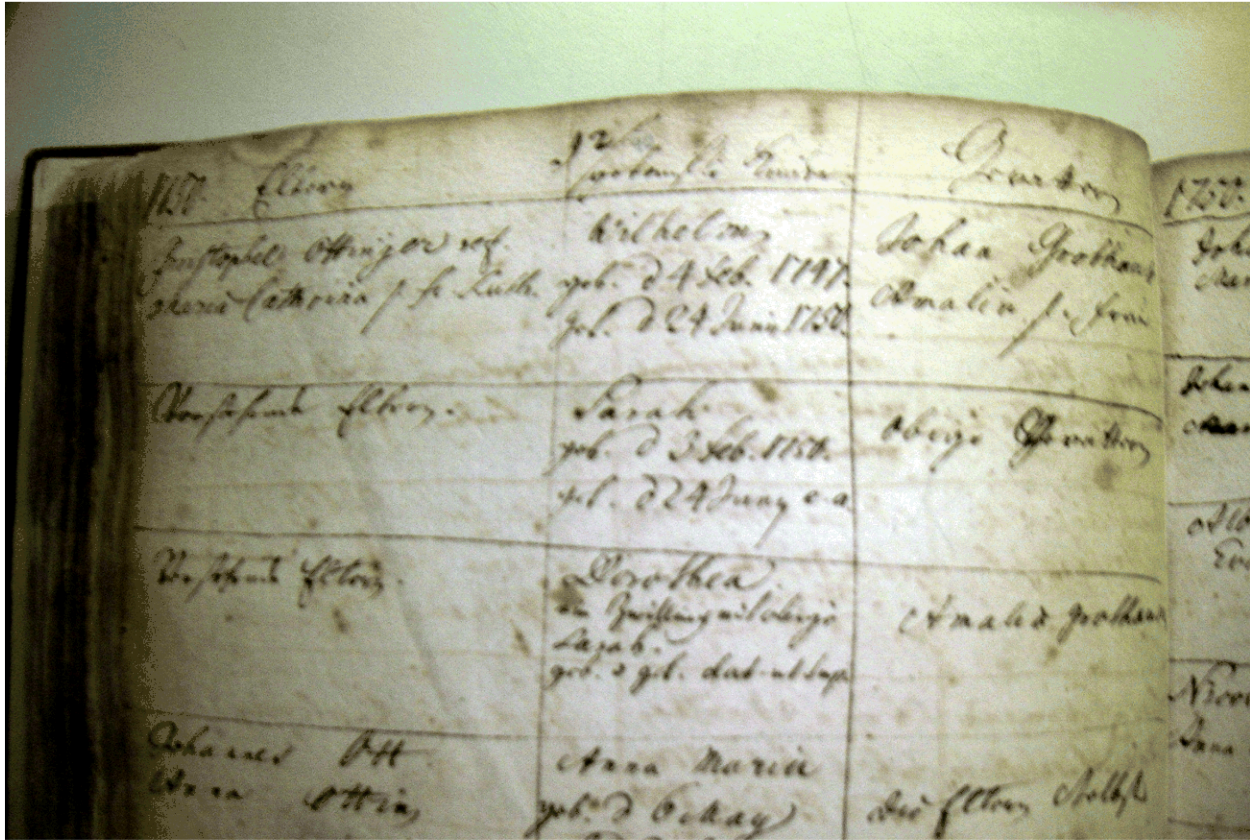 1750. Eltern
getaufte Kinder.
Gevattern
Christophel Ottinger ref.
Maria Catharina s. fr. Luth.
Wilhelm
geb. d 4 Feb. 1747.
get. d 24 Juny 1750.
Johan Grothaus
Amalia s. frau
Vorstehende Eltern.
Sarah
geb. d 3 Feb. 1750.
get. d 24 Juny e a
Obige Gevattern
Vorstehende Eltern.
Dorothea
ein Zwilling mit obiger
Sarah.
geb. & get. dat. ut sup.
Amalia Grothaus
Johannes Ott
Anna Ottin
Anna Maria
geb. d 6 May
Die Eltern Selbst
1750.
Joha
Johan
Anna